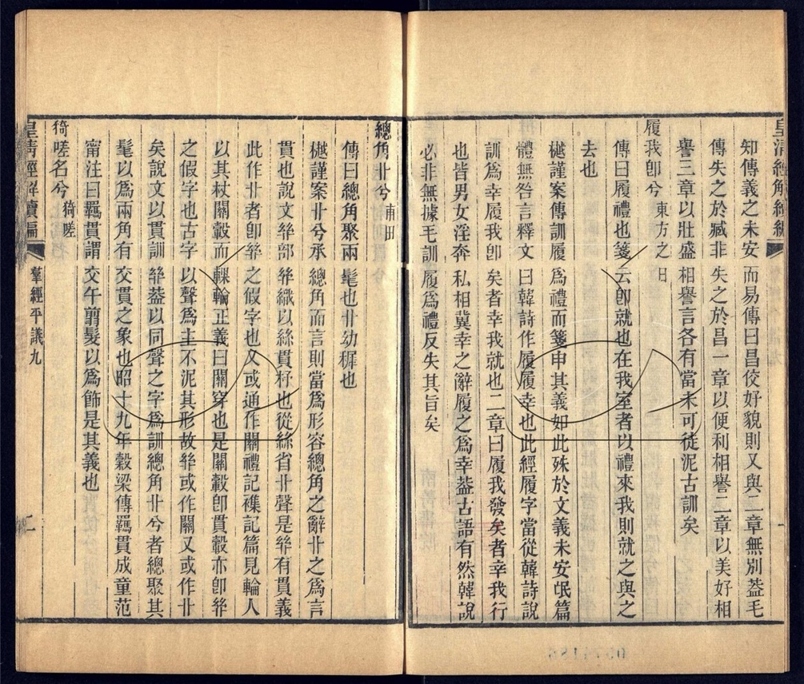 皇清經解續編
知傳義之未安而易傳曰昌佼好貌則又與二章無別葢毛
傳失之於臧非失之於昌一章以便利相譽二章以美好相
譽三章以壯盛相譽言各有當未可從泥古訓矣
履我卽兮 東方之日
傳曰履禮也箋云卽就也在我室者以禮來我則就之與之
去也
樾謹案傳訓履爲禮而箋申其義如此殊於文義未安氓篇
體無咎言釋文曰韓詩作履履幸也此經履字當從韓詩說
訓爲幸履我卽矣者幸我就也二章曰履我發矣者幸我行
也皆男女淫奔私相冀幸之辭履之爲幸葢古語有然韓說
必非無據毛訓履爲禮反失其旨矣
總角丱兮 甫田
傳曰總角聚兩髦也丱幼穉也
樾謹案丱兮承總角而言則當爲形容總角之辭丱之爲言
貫也說文𢇇部𢇇織以絲貫杼也從絲省丱聲是𢇇有貫義
此作丱者卽𢇇之假字也又或通作關禮記襍記篇見輪人
以其杖關轂而輠輪正義曰關穿也是關轂卽貫轂亦卽𢇇
之假字也古字以聲爲主不泥其形故𢇇或作關又或作丱
矣說文以貫訓𢇇葢以同聲之字爲訓總角丱兮者總聚其
髦以爲兩角有交貫之象也昭十九年穀梁傳羈貫成童范
甯注曰羈貫謂交午翦髮以爲飾是其義也
猗嗟名兮 猗嗟
皇清經解續編 羣經平議九 二